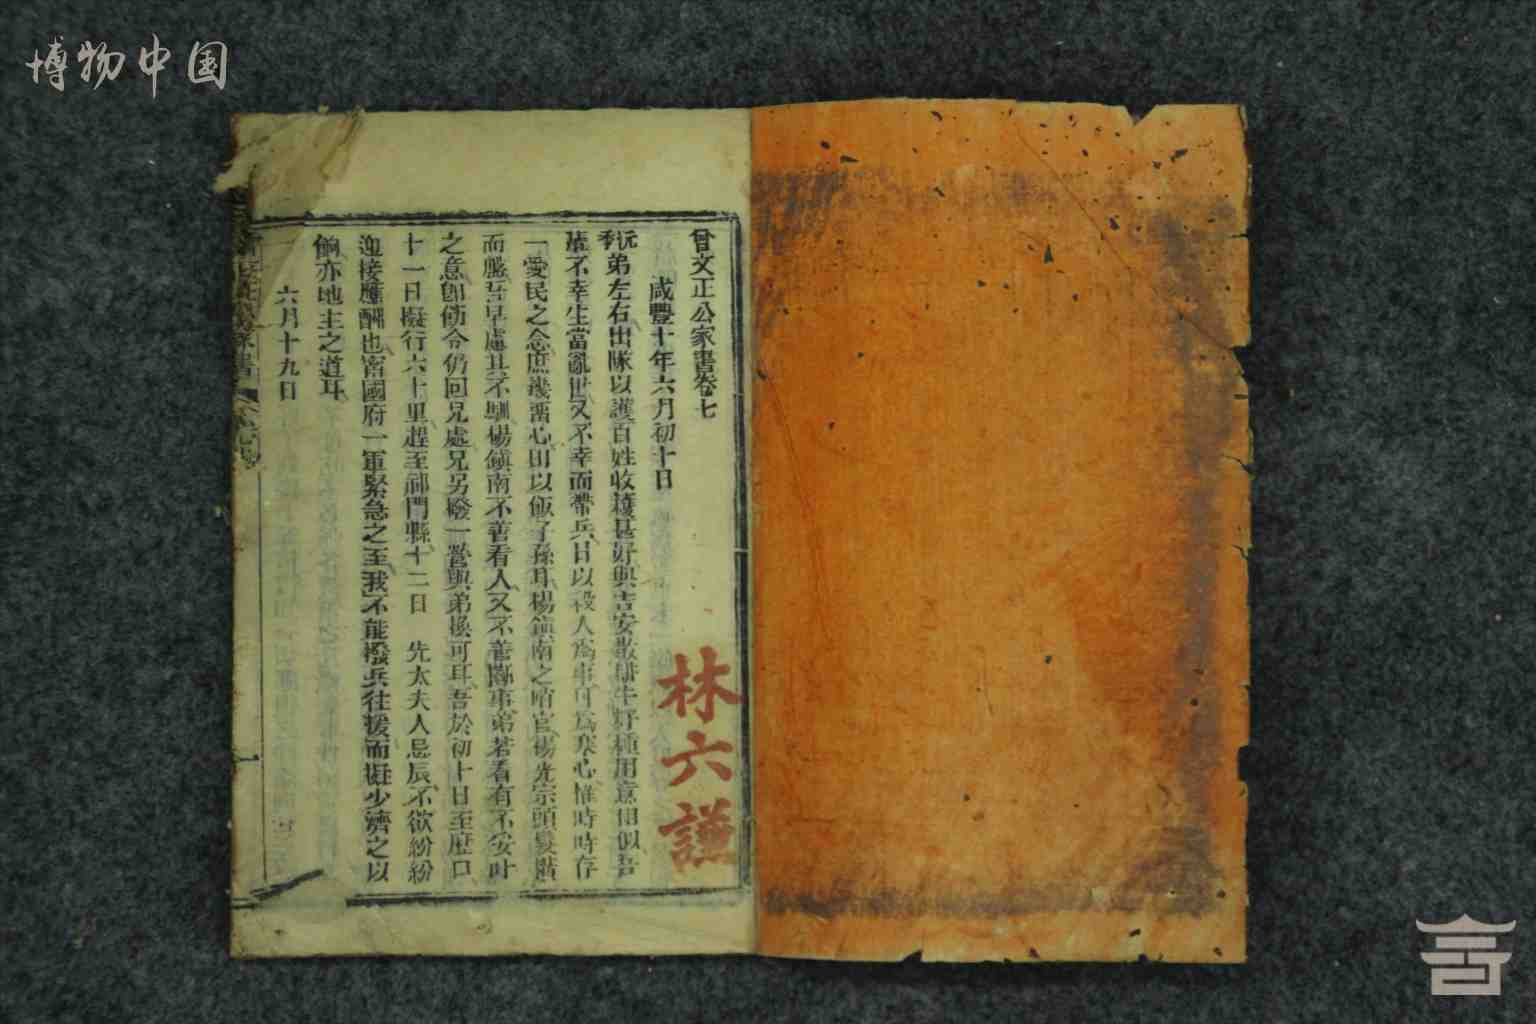 博物中国
曾文正公家書卷七
咸豐十年六月初十日
沅季弟左右出隊以護百姓收穫甚好與吉安散耕牛籽種用意相似吾
輩不幸生當亂世又不幸而帶兵日以殺人爲事可爲寒心惟時時存
一愛民之念庶幾留心田以飯子孫耳楊鎮南之哨官楊光宗頭髮橫
而盤吾早慮其不馴楊鎮南不善看人又不善斷事弟若看有不妥叶
之意卽飭令仍回兄處兄另撥一營與弟換可耳吾於初十日至歷口
十一日擬行六十里趕至祁門縣十二日 先太夫人忌辰不欲紛紛
迎接應酬也甯國府一軍緊急之至我不能撥兵往援而擬少濟之以
餉亦地主之道耳
六月十九日
林六謙